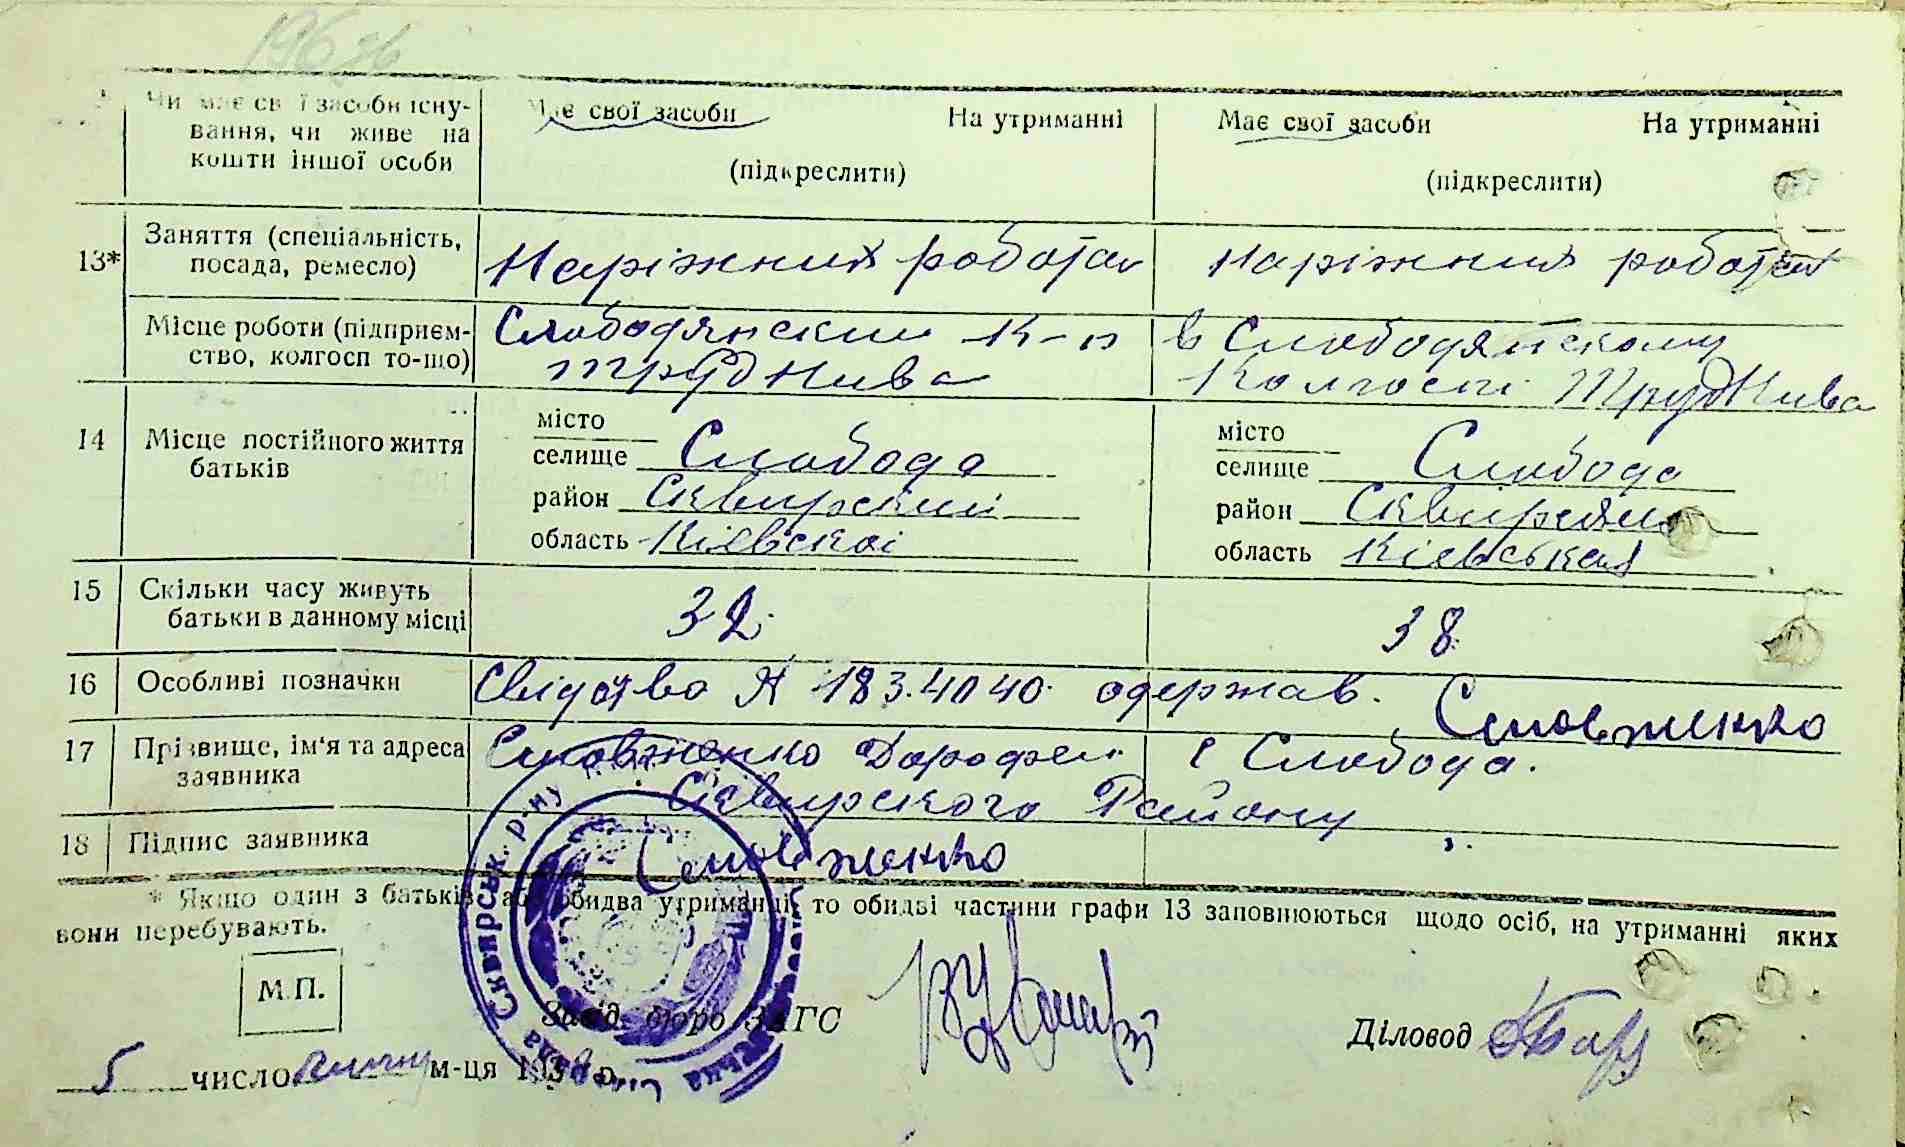 Чи має свої засоби існу- Має свої засоби На утриманні Має свої засоби На утриманні
вання, чи живе на
кошти іншої особи (підкреслити) (підкреслити)
13* Заняття (спеціальність,
посада, ремесло) Наріжних работах наріжних роботах
Місце роботи (підприєм- Слободянский К-п в Слободянскому
ство, колгосп то-що) труд Нива Колгоспі Труд Нива
14 Місце постійного життя
батьків
місто місто
селище Слобода селище Слобода
район Сквирский район
область Кіевскоі область
15 Скільки часу живуть
батьки в данному місці 32. 38.
16 Особливі позначки Свідство № одержав.
17 Прізвище, ім'я та адреса
заявника Дорофей с Слобода.
Сквирского Району
18 Підпис заявника
* Якщо один з батьків або обидва утриманці, то обидві частини графи 13 заповнюються щодо осіб, на утриманні яких
вони перебувають.
М.П.
Завід. бюро ЗАГС
Діловод
5 число м-ця 193 р.
Сквирськ. р-ну